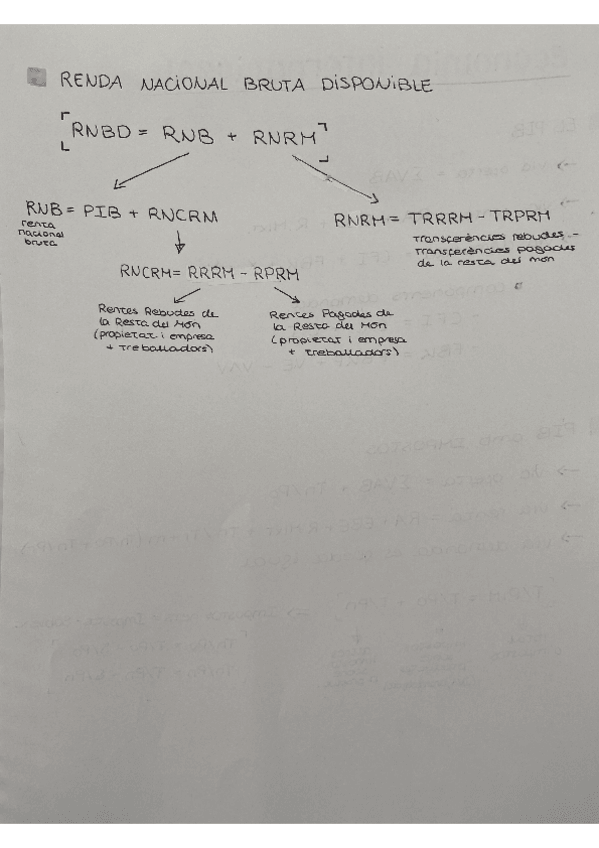 RENDA NACIONAL BRUTA DISPONIBLE
RNBD = RNB + RNRM
RNB = PIB + RNCRM
renta
nacional
bruta
RNRM = TRRRM - TRPRM
Transferències rebudes -
Transferències pagades
de la resta del món
RNCRM = RRRM - RPRM
Rentes Rebudes de
la Resta del Món
(propietat i empresa
+ treballadors)
Rentes Pagades de
la Resta del Món
(propietat i empresa
+ treballadors)